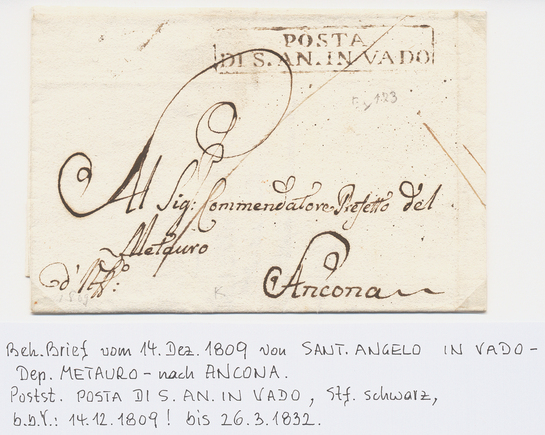 POSTA
DI S. AN. IN VADO
Al Sig: Commendatore Prefetto del
Metauro
d'Uff.º:
Ancona
K
Beh. Brief vom 14. Dez. 1809 von SANT. ANGELO IN VADO -
Dep. METAURO - nach ANCONA.
Postst. POSTA DI S. AN. IN VADO, Stf. schwarz,
b.b.V.: 14.12.1809! bis 26.3.1832.